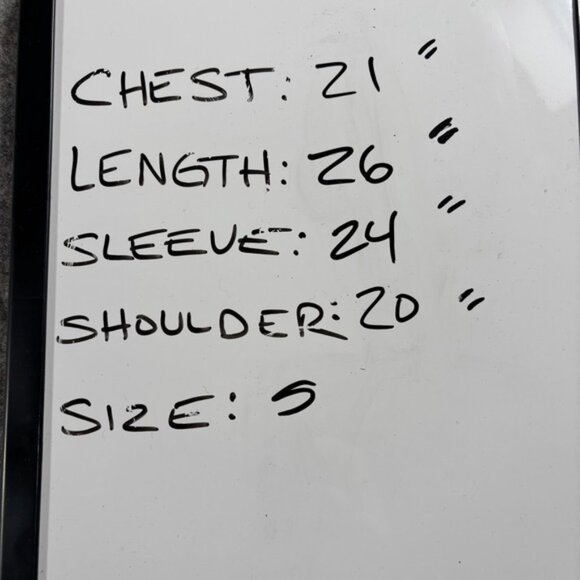 CHEST: 21"
LENGTH: 26"
SLEEVE: 24"
SHOULDER: 20"
SIZE: S